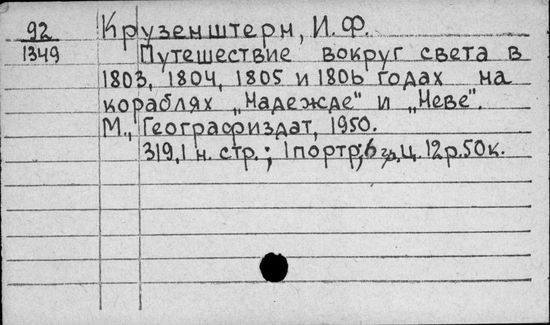 92 Крузенштерн, И.Ф.
1349 Путешествие вокруг света в
1803, 1804, 1805 и 1806 годах на
кораблях „Надежде" и „Неве".
М., Географиздат, 1950.
319,1 н. стр.; 1 портр; 6 Ц. 12р.50к.